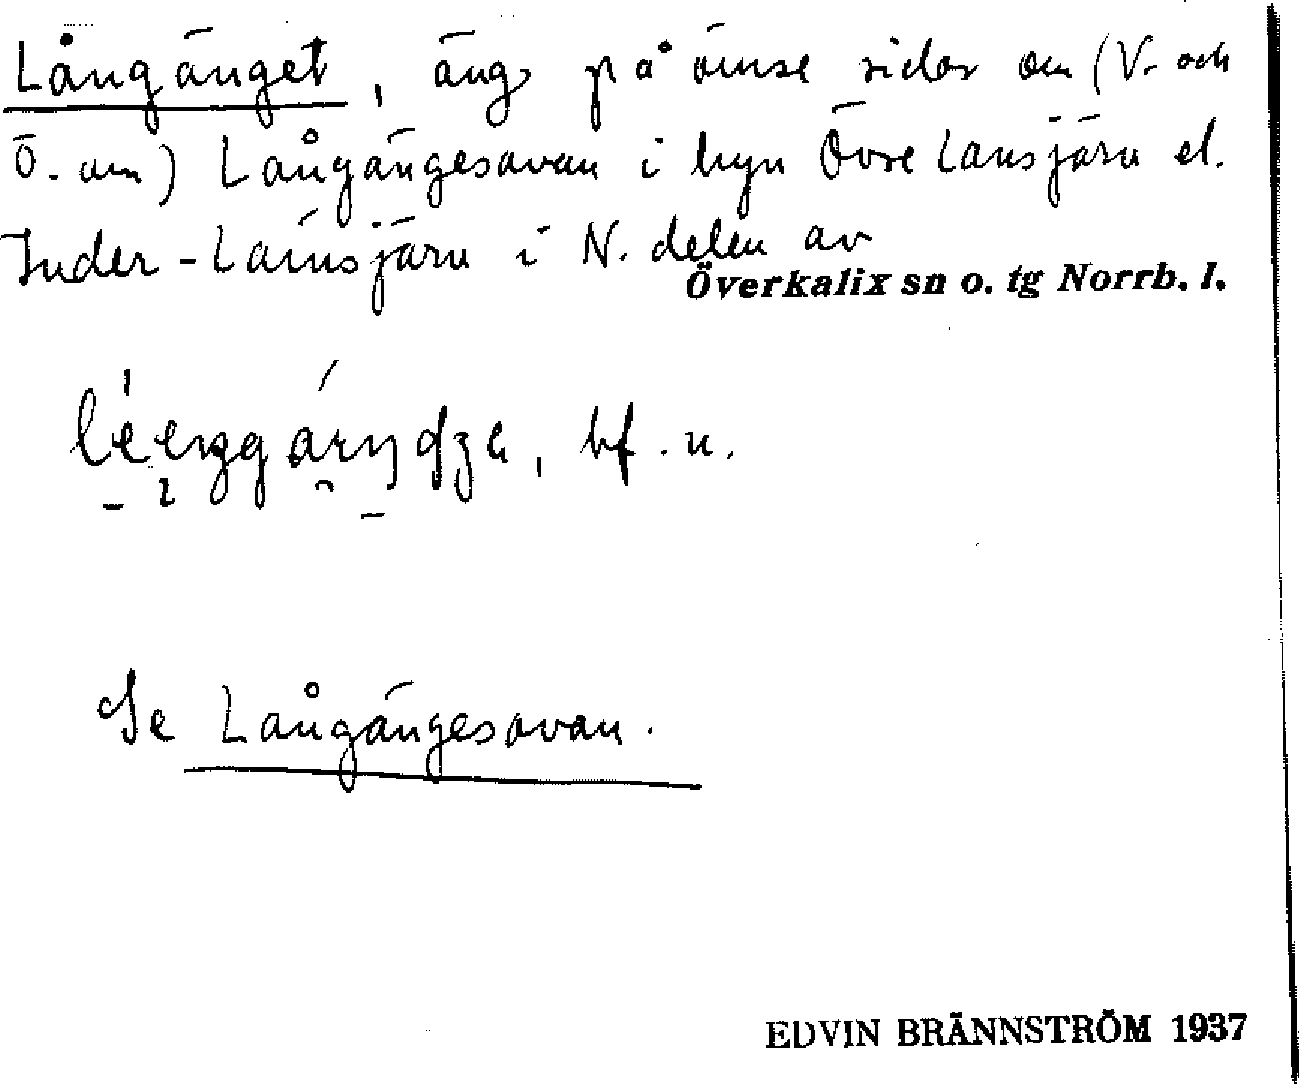 Långänget, äng på ömse sidor om (V. och
Ö. om) Långängesavan i byn Övre Lansjärv el.
Inder-Lansjärv i N. delen av
Överkalix sn o. tg Norrb. l.
bf. n.
Se Långängesavan.
EDVIN BRÄNNSTRÖM 1937